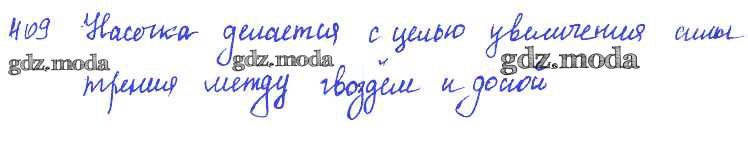 409 Насечка делается с целью увеличения силы
gdz.moda gdz.moda gdz.moda
трения между гвоздём и доской